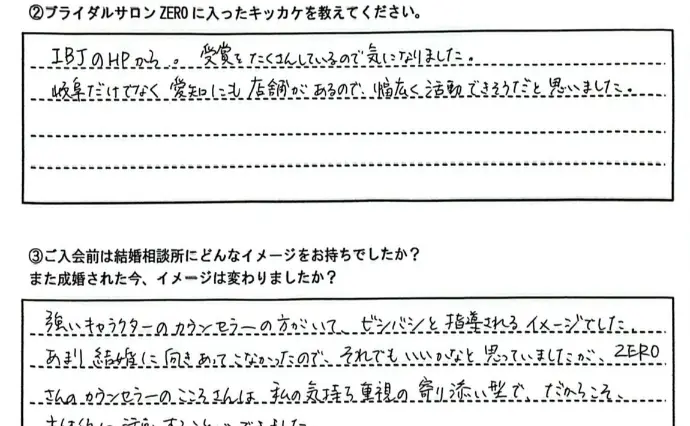 ②ブライダルサロン ZERO に入ったキッカケを教えてください。
IBJのHPから。受賞をたくさんしているので気になりました。
岐阜だけでなく愛知にも店舗があるので、幅広く活動できそうだと思いました。
③ご入会前は結婚相談所にどんなイメージをお持ちでしたか?
また成婚された今、イメージは変わりましたか?
強いキャラクターのカウンセラーの方がいて、ビシバシと指導されるイメージでした。
あまり結婚に向きあってこなかったので、それでもいいかなと思っていましたが、ZERO
さんのカウンセラーのこころさんは、私の気持ち重視の寄り添い型で、だからこそ、